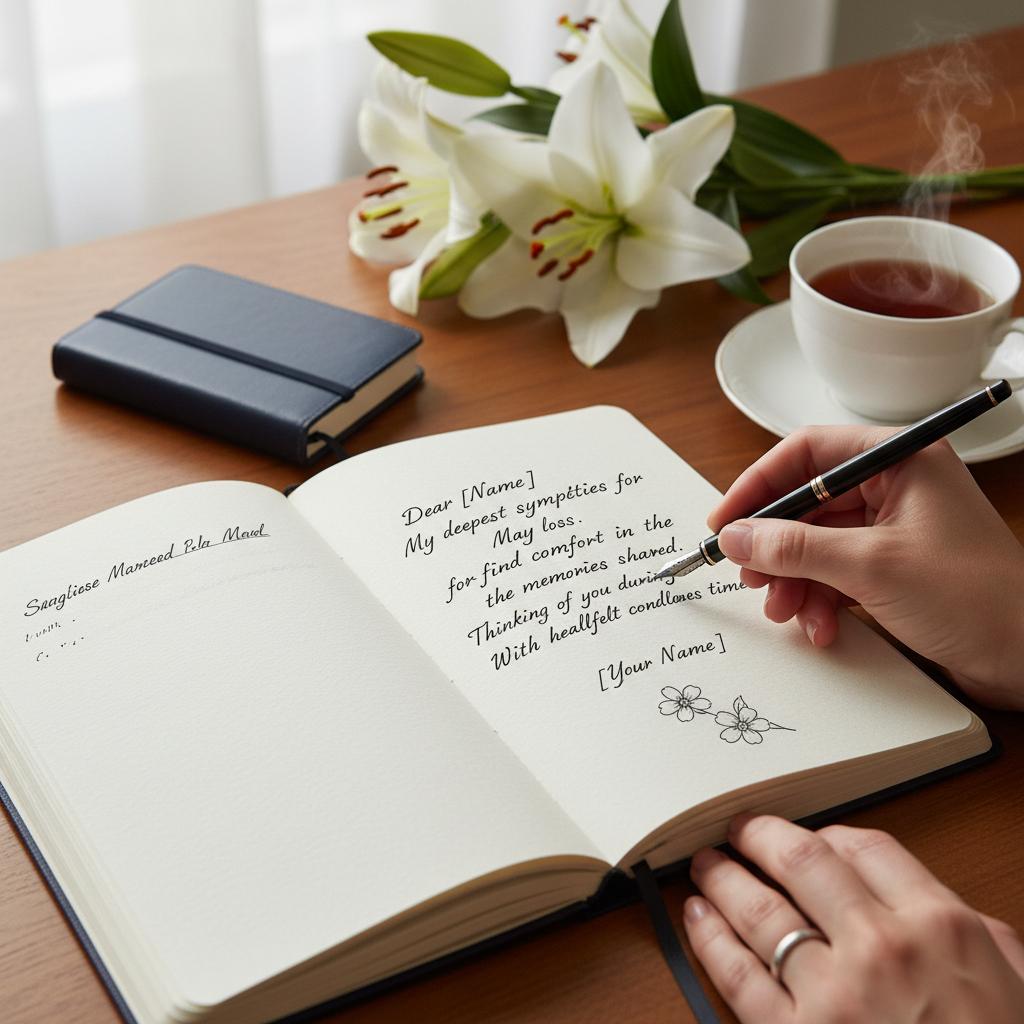 Snagliose Mameed Pele Maud
Dear [Name]
My deepest sympcties for
May loss.
for find comfort in the
the memories shaved.
Thinking of you during
With heallfelt condloes time
[Your Name]